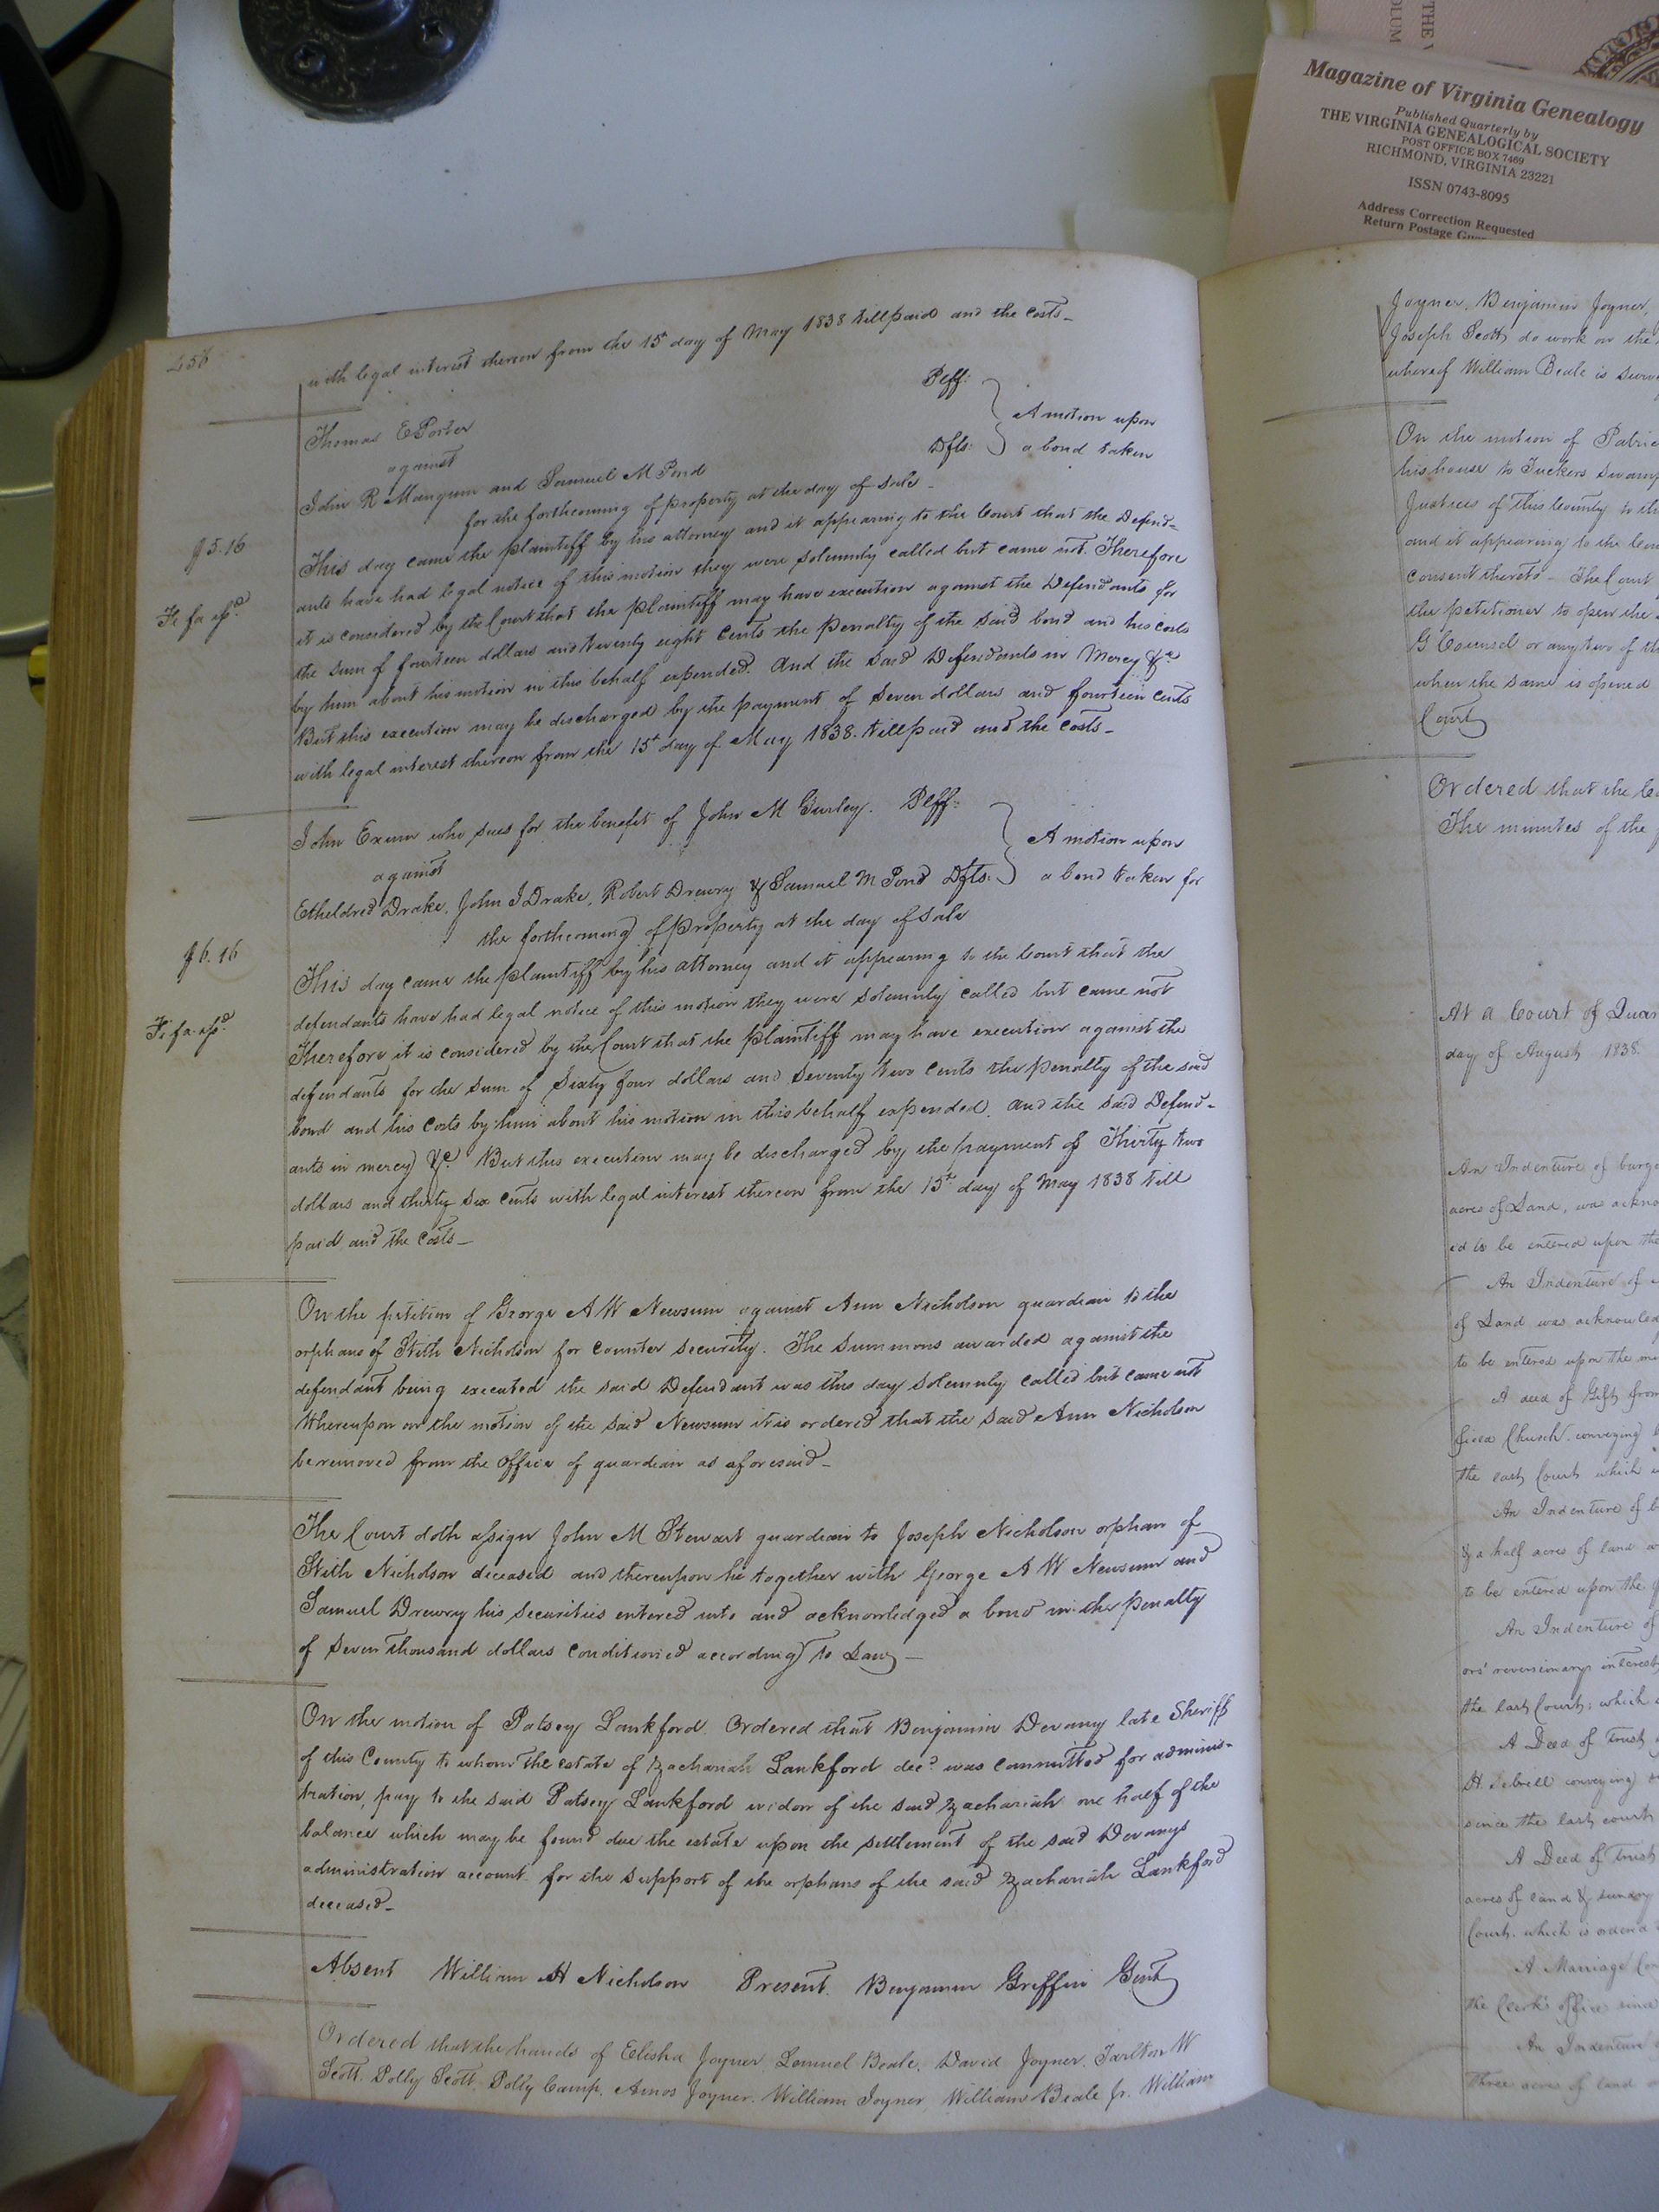 THE V
OLUM
Magazine of Virginia Genealogy
Published Quarterly by
THE VIRGINIA GENEALOGICAL SOCIETY
POST OFFICE BOX 7469
RICHMOND, VIRGINIA 23221
ISSN 0743-8095
Address Correction Requested
Return Postage Gu
with legal interest thereon from the 15t day of May 1838 till paid and the costs_
Thomas E Porter Plff:
against A motion upon
John R Mangum and Samuel M Pond Dfts: a bond taken
for the forthcoming of property at the day of sale_
This day came the plaintiff by his attorney and it appearing to the Court that the Defend=
ants have had legal notice of this motion they were solemnly called but came not. Therefore
it is considered by the Court that the plaintiff may have execution against the Defendants for
the sum of fourteen dollars and twenty eight cents the penalty of the said bond and his costs
by him about his motion in this behalf expended. And the said Defendants in Mercy &c
But this execution may be discharged by the payment of seven dollars and fourteen cents
with legal interest thereon from the 15t day of May 1838. till paid and the costs_
$5.16
John Exum who sues for the benefit of John M Gurley. Plff:
against A motion upon
Etheldred Drake, John J Drake, Robert Drewry & Samuel M Pond Dfts: a bond taken for
the forthcoming of property at the day of sale
This day came the plaintiff by his attorney and it appearing to the Court that the
defendants have had legal notice of this motion they were solemnly called but came not
Therefore it is considered by the Court that the plaintiff may have execution against the
defendants for the sum of Sixty four dollars and seventy two cents the penalty of the said
bond and his costs by him about his motion in this behalf expended. and the said Defend-
ants in mercy &c But this execution may be discharged by the payment of Thirty two
dollars and thirty six cents with legal interest thereon from the 15th day of May 1838 till
paid and the costs_
$6.16
On the petition of George A W Newsum against Ann Nicholson guardian to the
orphans of Stith Nicholson for counter security. The summons awarded against the
defendant being executed the said Defendant was this day solemnly called but came not
Whereupon on the motion of the said Newsum it is ordered that the said Ann Nicholson
be removed from the office of guardian as aforesaid_
The Court doth assign John M Stewart guardian to Joseph Nicholson orphan of
Stith Nicholson deceased and thereupon he together with George A W Newsum and
Samuel Drewry his securities entered into and acknowledged a bond in the penalty
of seven thousand dollars conditioned according to Law_
On the motion of Patsey Lankford. Ordered that Benjamin Devany late Sheriff
of this County to whom the estate of Zachariah Lankford decd. was committed for adminis-
tration, pay to the said Patsey Lankford widow of the said Zachariah one half of the
balance which may be found due the estate upon the settlement of the said Devanys
administration account for the support of the orphans of the said Zachariah Lankford
deceased_
Absent William H Nicholson Present. Benjamin Griffin Gent
Ordered that the hands of Elisha Joyner, Lemuel Beale, David Joyner, Tarlton W
Scott, Polly Scott, Polly Camp, Amos Joyner, William Joyner, William Beale jr. William
Joyner, Benjamin Joyner,
Joseph Scott, do work on the
whereof William Beale is
On the motion of
his house to Tuckers Swamp
Justices of this County to
and it appearing to the
consent thereto_ The Court
the petitioner to open the
G Counsel or any two of
when the same is opened
Court
Ordered that the
The minutes of the
At a Court of
day of August 1838.
An Indenture of
acres of Land, was
ed to be entered upon the
An Indenture of
of Land was
to be entered upon the
A deed of Gift from
Church conveying
the last Court which
An Indenture of
& a half acres of land
to be entered upon the
An Indenture of
ors' reversionary interest
the last Court; which
A Deed of trust
conveying
since the last court
A Deed of trust
acres of land & sundry
Court. which is
A Marriage
the Clerk's office since
An Indenture
three acres of land